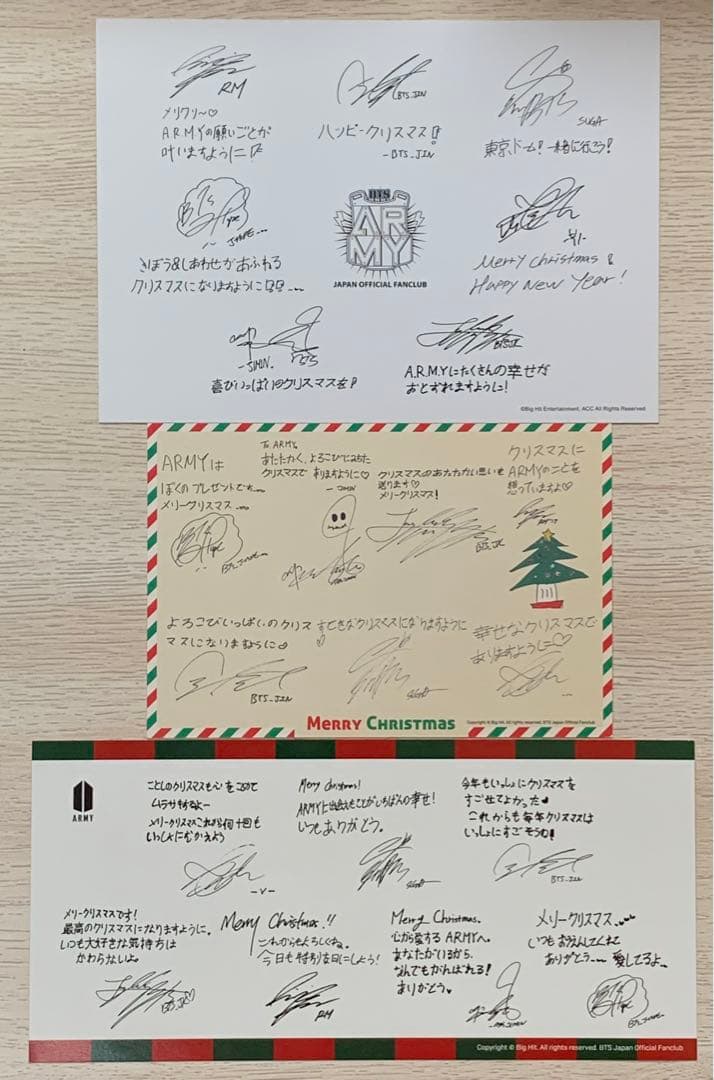 RM
メリクリ〜♡
A.R.M.Yの願いごとが
叶いますように!
BTS.JIN
ハッピークリスマス!
-BTS_JIN
BTS
SUGA
東京ドーム!一緒に行こう!
BTS
J-HOPE
きぼう&しあわせがあふれる
クリスマスになりますように
BTS
ARMY
JAPAN OFFICIAL FANCLUB
Merry Christmas &
Happy New Year!
-JIMIN.
BTS
喜びいっぱいのクリスマスを!
BTS.JK
A.R.M.Yにたくさんの幸せが
おとずれますように!
©Big Hit Entertainment, ACC All Rights Reserved.
ARMYは
ぼくのプレゼントです
メリークリスマス
BTS
To ARMY
あたたかく、よろこびにみちた
クリスマスでありますように♡
-JIMIN
クリスマスのあたたかい思いを
送ります♡
メリークリスマス!
BTS.JK
クリスマスに
ARMYのことを
想っていますよ♡
よろこびいっぱいのクリス
マスになりますように♡
BTS_JIN
すてきなクリスマスになりますように
SUGA
幸せなクリスマスで
ありますように♡
MERRY CHRISTMAS
Copyright © Big Hit. All rights reserved. BTS Japan Official Fanclub.
ARMY
ことしのクリスマスも心をこめて
ムラサキするよー
メリークリスマスこれから何十回も
いっしょにむかえよう
-V-
Merry Christmas!
ARMYと出会えたことがいちばんの幸せ!
いつもありがとう。
SUGA
今年もいっしょにクリスマスを
すごせてよかった
これからも毎年クリスマスは
いっしょにすごそうね!
BTS_JIN
メリークリスマスです!
最高のクリスマスになりますように。
いつも大好きな気持ちは
かわらないよ。
BTS.JK♡
Merry Christmas!!
これからもよろしくね。
今日も特別な日にしよう!
RM
Merry Christmas.
心から愛するARMYへ。
あなたがいるから、
なんでもがんばれる!
ありがとう
JIMIN
メリークリスマス
いつもおうえんしてくれて
ありがとう 愛してるよ
Copyright © Big Hit. All rights reserved. BTS Japan Official Fanclub.